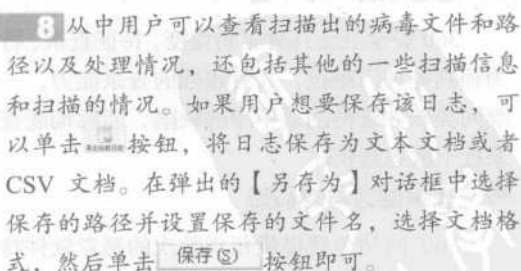 8 从中用户可以查看扫描出的病毒文件和路
径以及处理情况，还包括其他的一些扫描信息
和扫描的情况。如果用户想要保存该日志，可
以单击 按钮，将日志保存为文本文档或者
CSV 文档。在弹出的【另存为】对话框中选择
保存的路径并设置保存的文件名，选择文档格
式，然后单击 保存(S) 按钮即可。